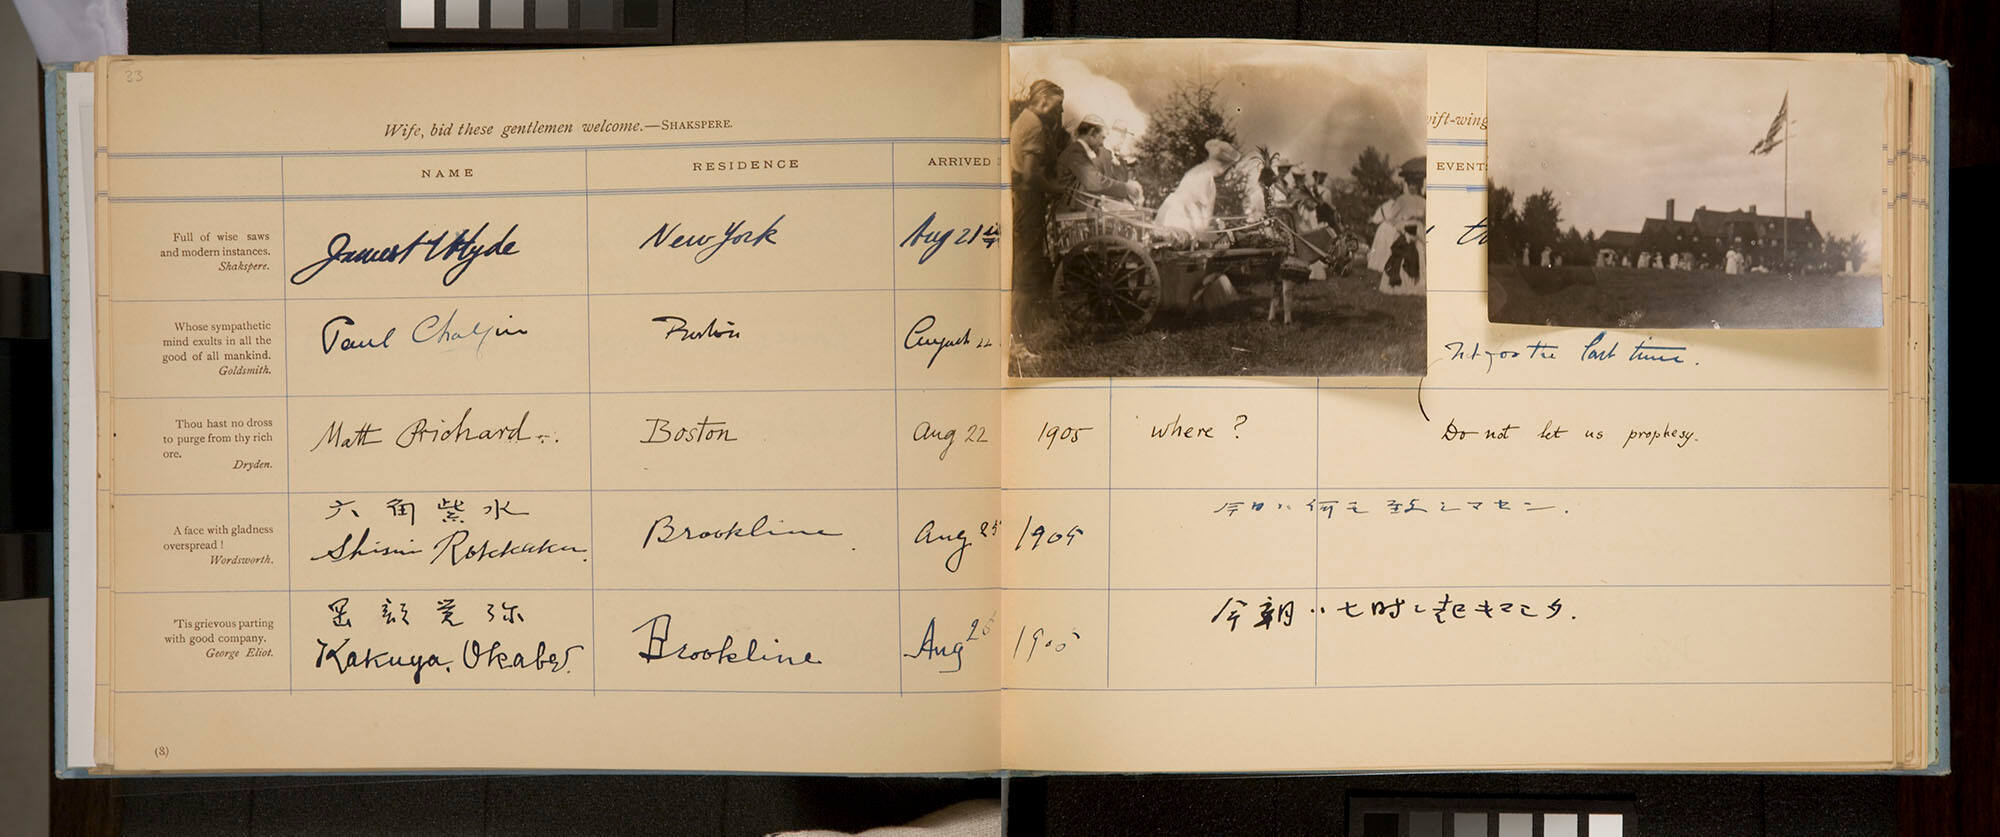 33
Wife, bid these gentlemen welcome.—SHAKSPERE.
NAME RESIDENCE ARRIVED EVENTS
Full of wise saws
and modern instances.
Shakspere.
New York Aug 21
Hyde
Whose sympathetic
mind exults in all the
good of all mankind.
Goldsmith.
Paul Chalfin August 22
the last time.
Thou hast no dross
to purge from thy rich
ore.
Dryden.
Matt Prichard Boston Aug 22 1905 where? Do not let us prophesy.
A face with gladness
overspread!
Wordsworth.
六角紫水 今日ハ何モ致シマセン.
Shisui Rokkaku. Brookline Aug 25 1905
'Tis grievous parting
with good company.
George Eliot.
岡部覚弥 今朝ハ七時ニ起キマシタ.
Kakuya. Okabe. Brookline Aug 1905
(8)